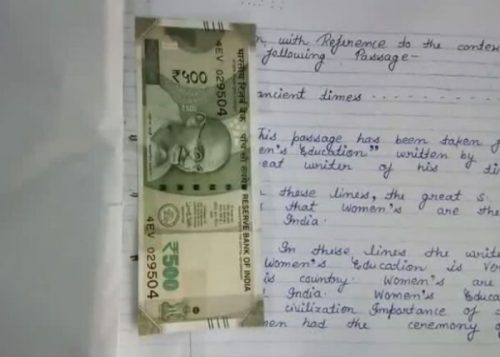 with Reference to the contex
following Passage-
ancient times ..........
This passage has been taken f
en's Education" written by
eat writer of his ti
these lines, the great s
that women's are the
India.
In these lines the write
Women's Education is
is country. Women's are
India. Women's Educa
civilization Importance of
men had the ceremony of
भारतीय रिज़र्व बैंक
RESERVE BANK OF INDIA
₹५००
4EV 029504
₹500
4EV 029504